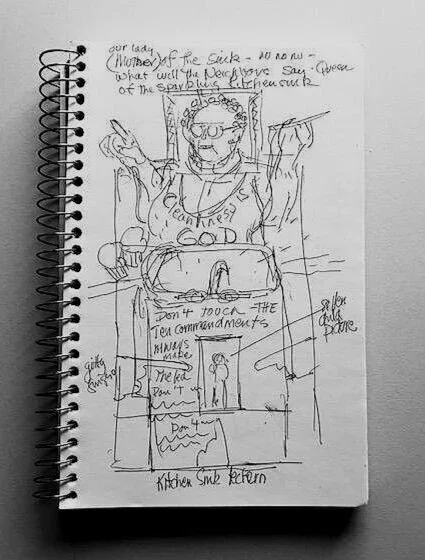 our lady
(Mother) of the Sink - no no no -
what will the Neighbors say - Queen
of the sparkling kitchen sink
Cleanliness is
GOD
Don't touch - THE
Ten commandments
Always
make
The bed
Don't
Don't
Kitchen Sink